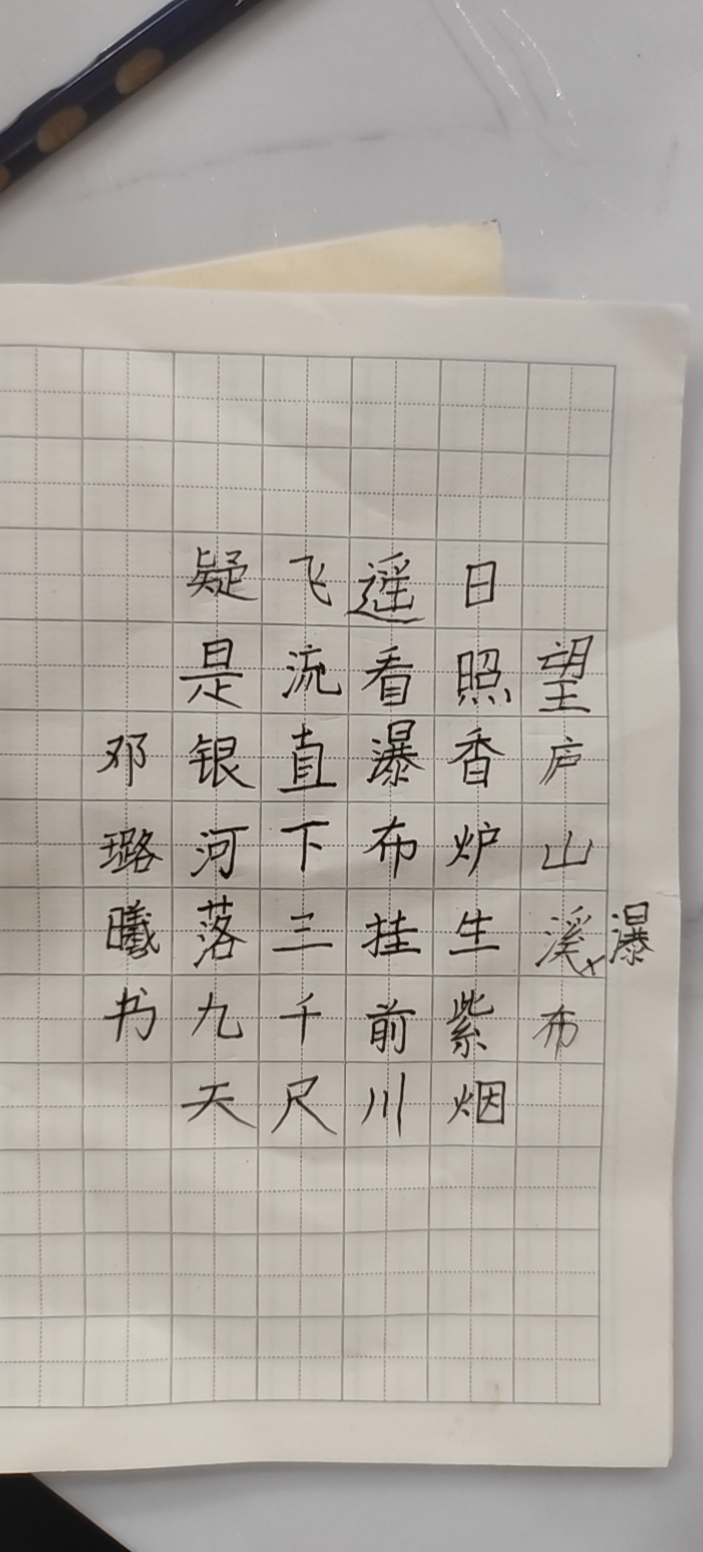 望庐山溪布
瀑
日照香炉生紫烟
遥看瀑布挂前川
飞流直下三千尺
疑是银河落九天
邓璐曦书